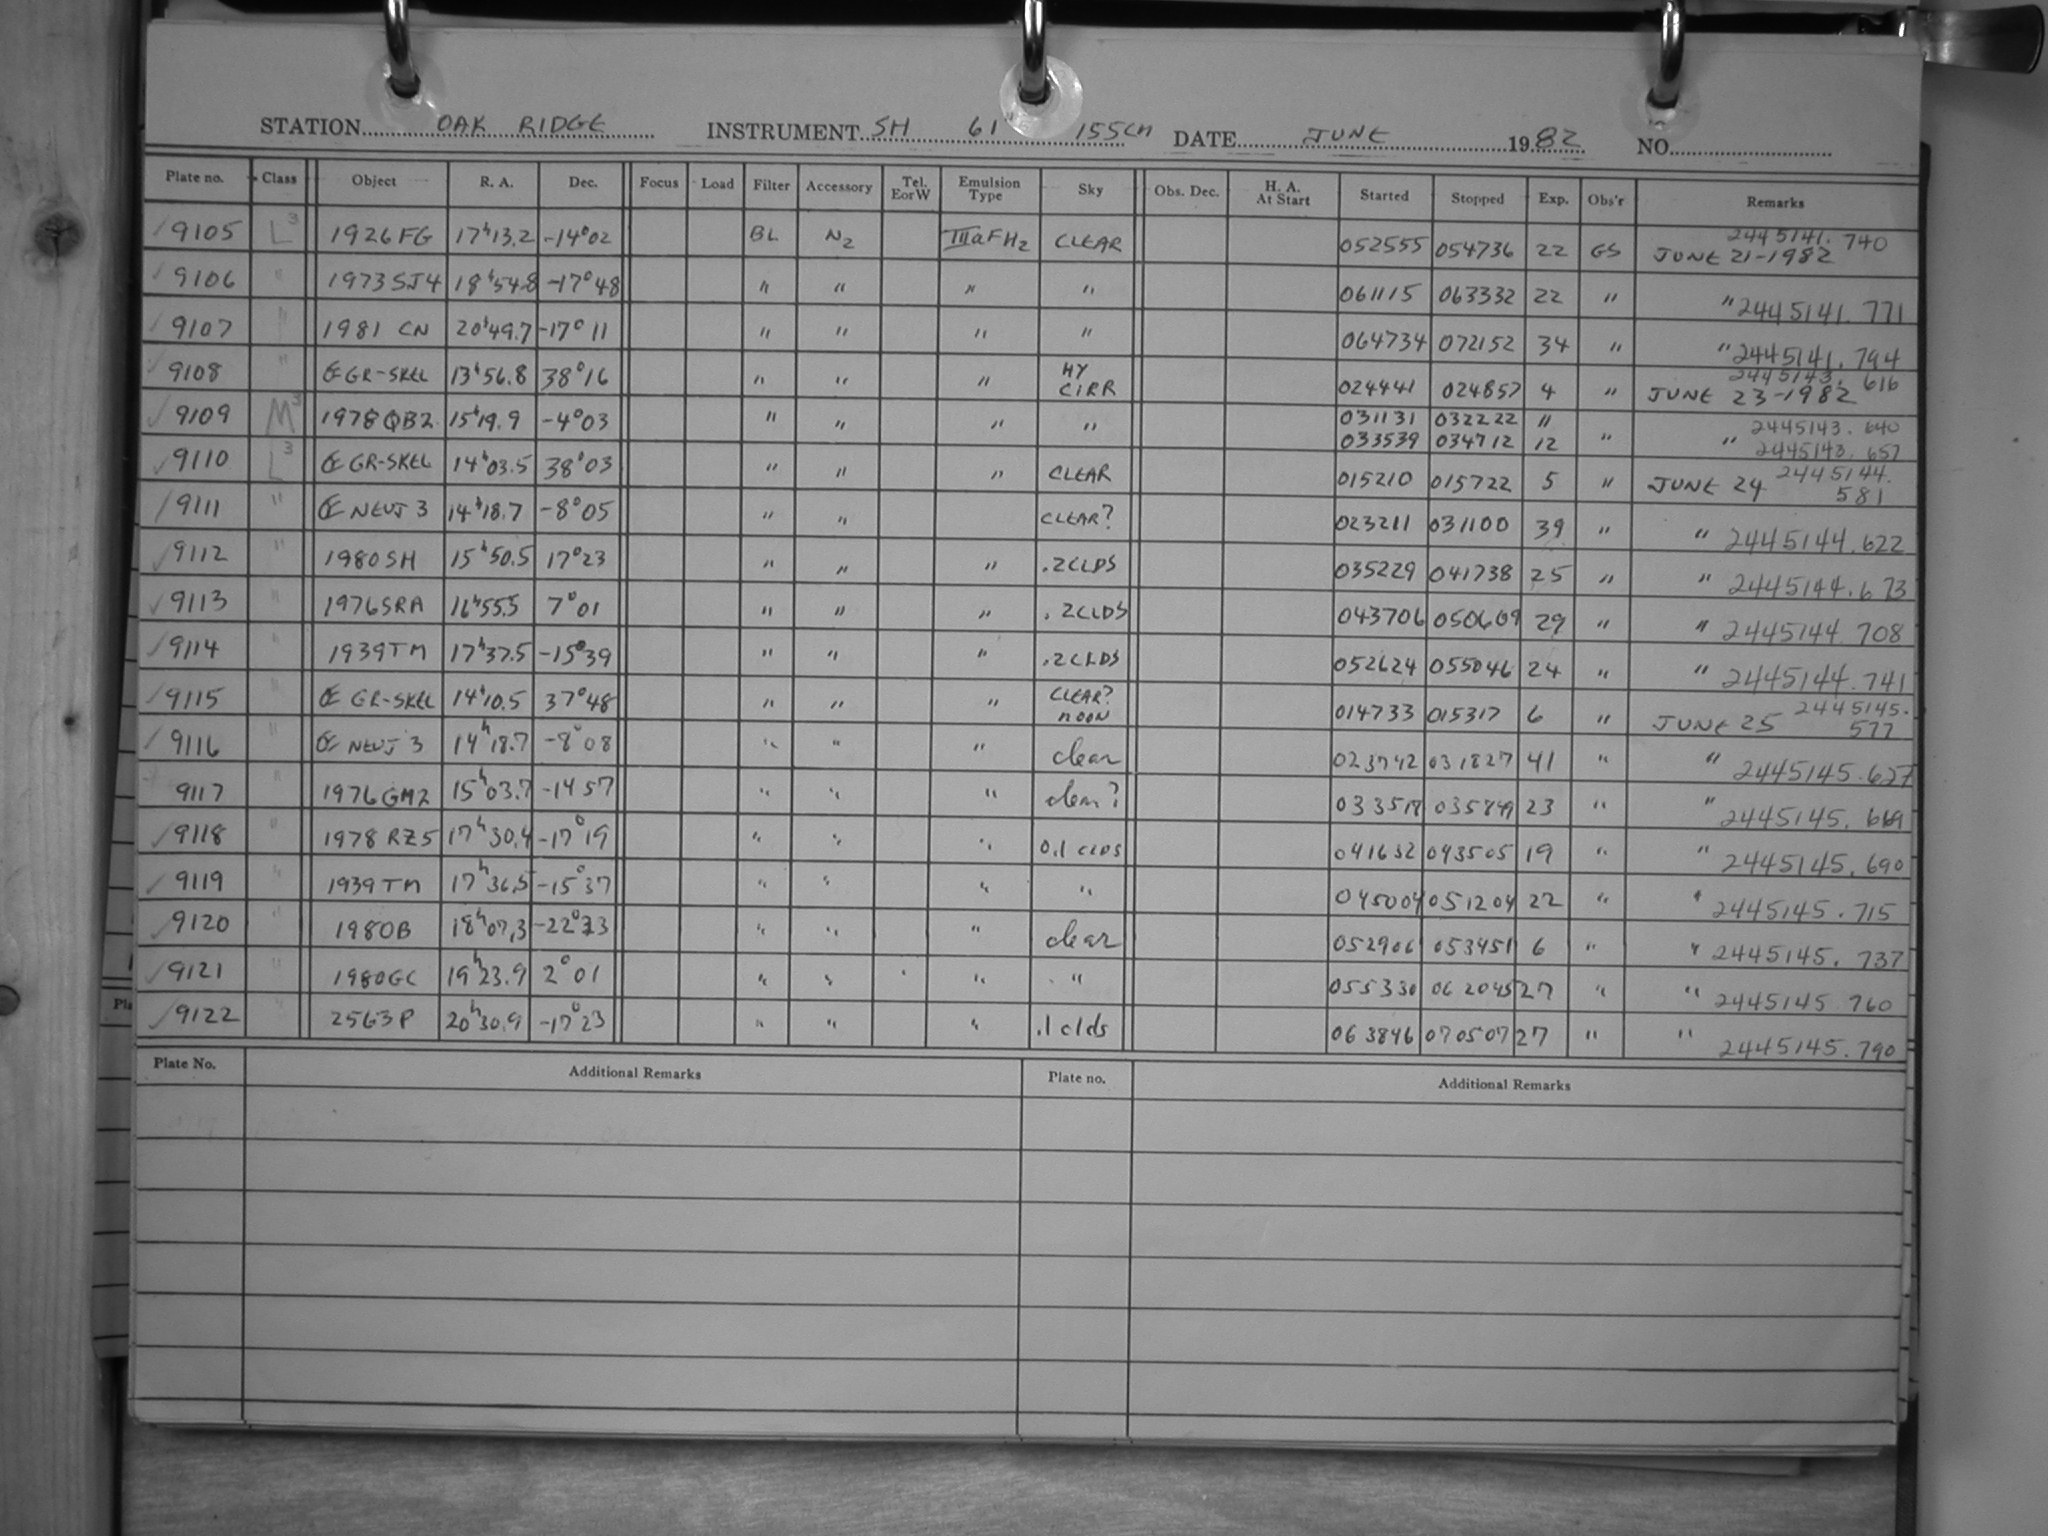 STATION OAK RIDGE INSTRUMENT SH 61" 155CM DATE JUNE 1982 NO.
Plate no. Class Object R. A. Dec. Focus Load Filter Accessory Tel. E or W Emulsion Type Sky Obs. Dec. H. A. At Start Started Stopped Exp. Obs'r Remarks
9105 L3 1926FG 17h13.2 -14°02 BL N2 IIIaFH2 CLEAR 052555 054736 22 GS JUNE 21-1982 2445141.740
9106 " 1973SJ4 18h54.8 -17°48 " " " " 061115 063332 22 " " 2445141.771
9107 " 1981 CN 20h49.7 -17°11 " " " " 064734 072152 34 " " 2445141.794
9108 " GR-SKEL 13h56.8 38°16 " " " HY CIRR 024441 024857 4 " JUNE 23-1982 2445143.616
9109 M3 1978QB2 15h19.9 -4°03 " " " " 031131 032222 11 2445143.640
033539 034712 12 " " 2445143.657
9110 L3 GR-SKEL 14h03.5 38°03 " " " CLEAR 015210 015722 5 " JUNE 24 2445144.581
9111 " NEUJ 3 14h18.7 -8°05 " " CLEAR? 023211 031100 39 " " 2445144.622
9112 " 1980SH 15h50.5 17°23 " " " .2CLDS 035229 041738 25 " " 2445144.673
9113 " 1976SRA 16h55.5 7°01 " " " .2CLDS 043706 050609 29 " " 2445144.708
9114 " 1939TM 17h37.5 -15°39 " " " .2CLDS 052624 055046 24 " " 2445144.741
9115 " GR-SKEL 14h10.5 37°48 " " " CLEAR? MOON 014733 015317 6 " JUNE 25 2445145.577
9116 " NEUJ 3 14h18.7 -8°08 " " " clear 023742 031827 41 " " 2445145.627
9117 " 1976GM2 15h03.7 -14 57 " " " clear? 033518 035849 23 " " 2445145.669
9118 " 1978 RZ5 17h30.4 -17°19 " " " 0.1 CLDS 041632 043505 19 " " 2445145.690
9119 " 1939TM 17h36.5 -15°37 " " " " 045004 051204 22 " " 2445145.715
9120 " 1980B 18h07.3 -22°23 " " " clear 052906 053451 6 " " 2445145.737
9121 " 1980GC 19h23.9 2°01 " " " " 055330 062045 27 " " 2445145.760
9122 " 2563P 20h30.9 -17°23 " " " .1 clds 063846 070507 27 " " 2445145.790
Plate No. Additional Remarks Plate no. Additional Remarks